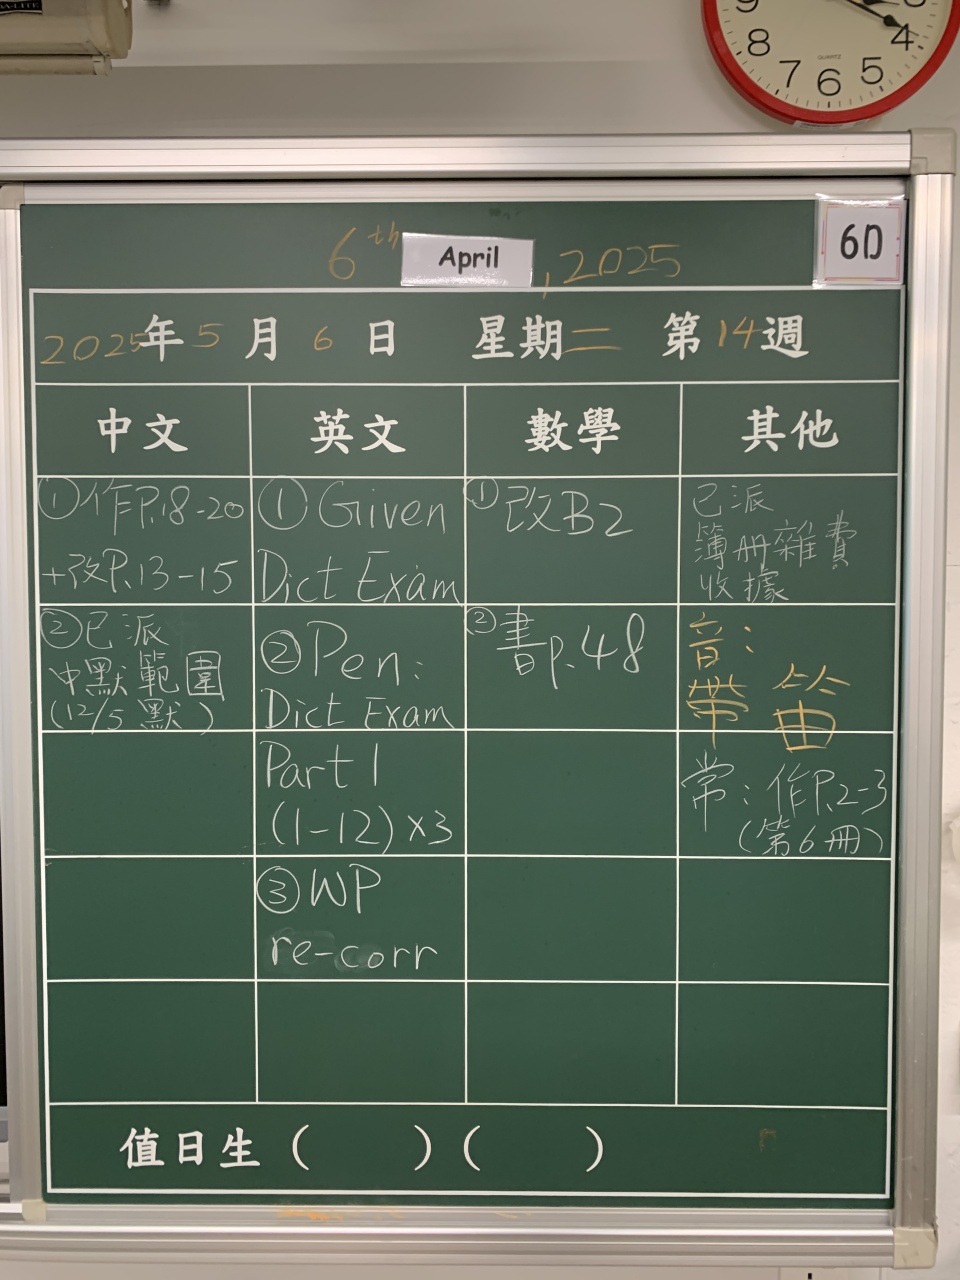 9
8
7
6
5
4
QUARTZ
6th April, 2025
6D
2025年5月6日 星期二 第14週
中文 英文 數學 其他
①作P.18-20
+改P.13-15
②已派
中默範圍
(12/5 默)
①Given
Dict Exam
②Pen:
Dict Exam
Part 1
(1-12)×3
③WP
re-corr
①改B2
②書p.48
已派
簿冊雜費
收據
音:
帶笛
常:作P.2-3
(第6冊)
值日生( )( )